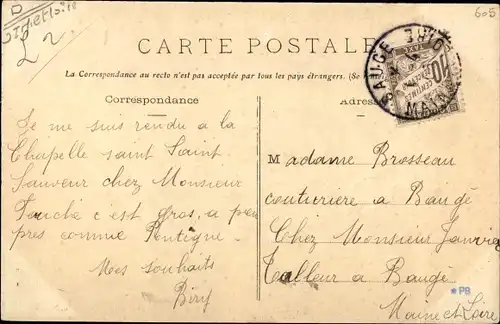 D
605
L 2
CARTE POSTALE
La Correspondance au recto n'est pas acceptée par tous les pays étrangers. (Se
Correspondance
Adresse
Je me suis rendu a la
Chapelle saint Saint
Sauveur chez Monsieur
c'est gros, a peu
pres comme Pontigné
Mes souhaits
M adame Brosseau
couturiere a Baugé
Chez Monsieur Janvier
Tailleur a Baugé
Maine et Loire
BAUGÉ
10
*PB